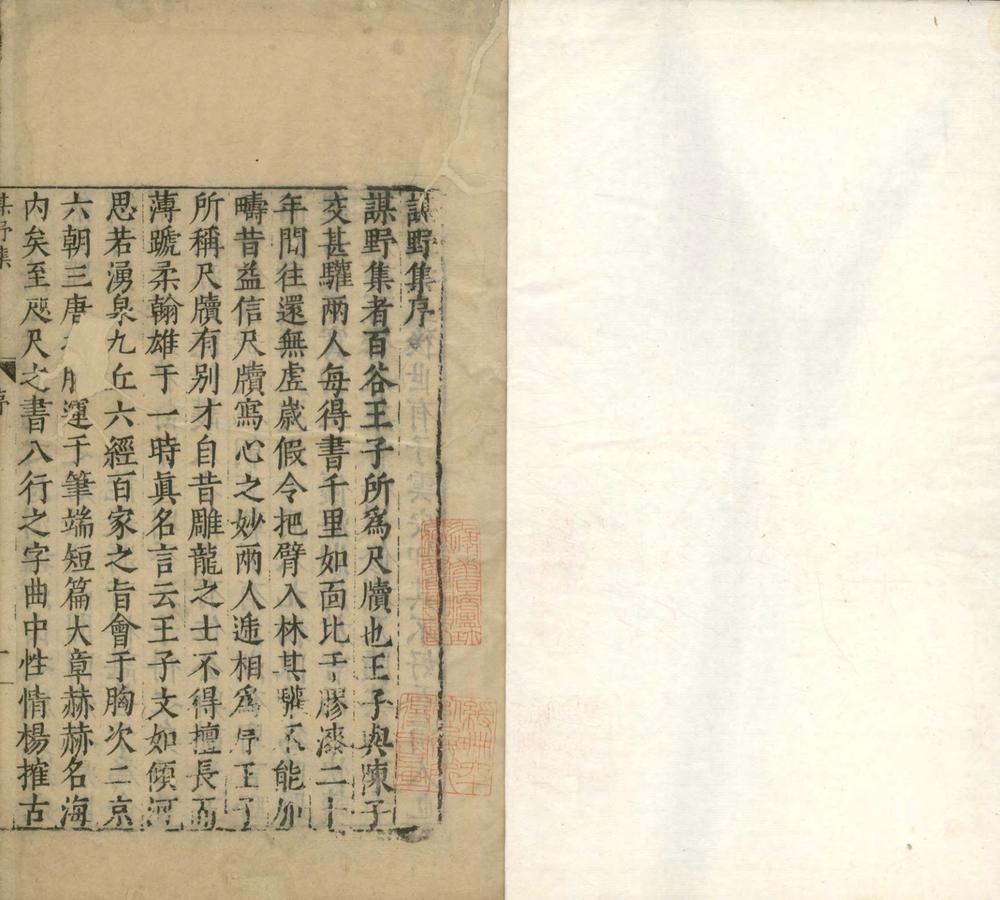 謀野集序
謀野集者百谷王子所爲尺牘也王子與陳子
交甚驩兩人每得書千里如面比于膠漆二十
年間往還無虛歲假令把臂入林其驩不能加
疇昔益信尺牘寫心之妙兩人遞相爲序王子
所稱尺牘有别才自昔雕龍之士不得擅長而
薄蹏柔翰雄于一時眞名言云王子文如傾河
思若湧泉九丘六經百家之旨會于胸次二京
六朝三唐運于筆端短篇大章赫赫名海
內矣至咫尺之書八行之字曲中性情楊搉古
謀野集
序